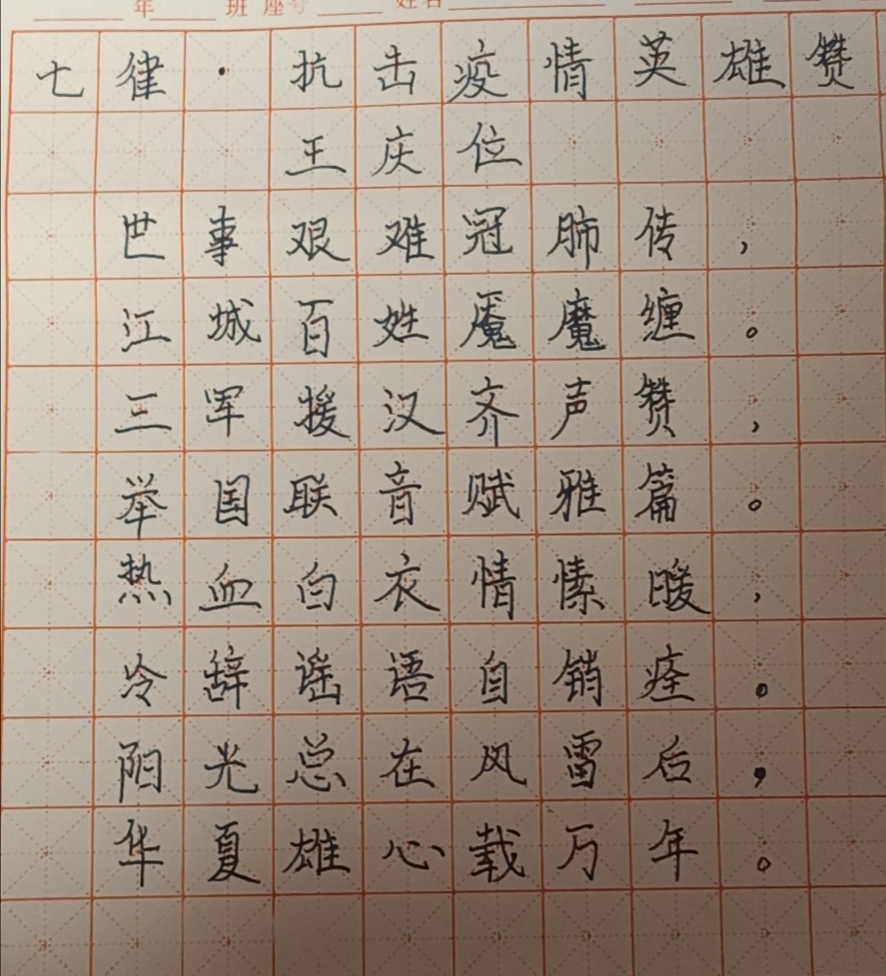 年 班 座号 姓名
七律·抗击疫情英雄赞
王庆位
世事艰难冠肺传，
江城百姓魇魔缠。
三军援汉齐声赞，
举国联音赋雅篇。
热血白衣情愫暖，
冷辞谣语自销痊。
阳光总在风雷后，
华夏雄心载万年。